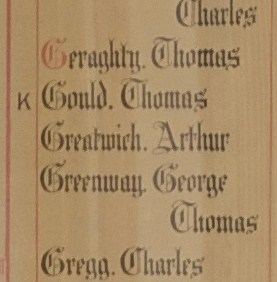 Charles
Geraghty. Thomas
K Gould. Thomas
Greatwich. Arthur
Greenway. George
Thomas
Gregg. Charles